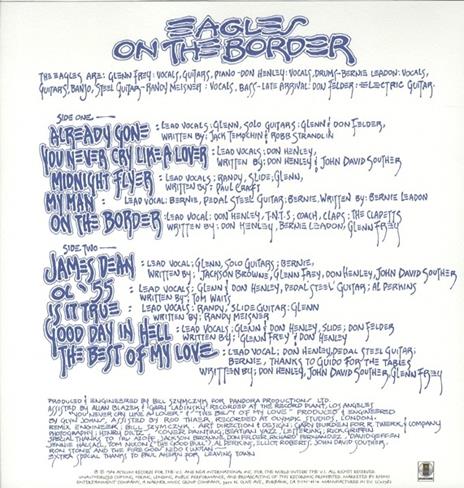 EAGLES
ON THE BORDER
THE EAGLES ARE: GLENN FREY: VOCALS, GUITARS, PIANO - DON HENLEY: VOCALS, DRUMS - BERNIE LEADON: VOCALS,
GUITARS, BANJO, STEEL GUITAR - RANDY MEISNER: VOCALS, BASS - LATE ARRIVAL: DON FELDER: ELECTRIC GUITAR.
SIDE ONE
ALREADY GONE : LEAD VOCALS: GLENN, SOLO GUITARS: GLENN & DON FELDER,
WRITTEN BY: JACK TEMPCHIN & ROBB STRANDLIN
YOU NEVER CRY LIKE A LOVER : LEAD VOCALS: DON HENLEY,
WRITTEN BY: DON HENLEY & JOHN DAVID SOUTHER
MIDNIGHT FLYER : LEAD VOCALS: RANDY, SLIDE: GLENN,
WRITTEN BY: PAUL CRAFT
MY MAN : LEAD VOCAL: BERNIE, PEDAL STEEL GUITAR: BERNIE, WRITTEN BY: BERNIE LEADON
ON THE BORDER : LEAD VOCAL: DON HENLEY, T.N.T.S; COACH, CLAPS: THE CLAPETTS
WRITTEN BY: DON HENLEY, BERNIE LEADON, GLENN FREY
SIDE TWO
JAMES DEAN : LEAD VOCAL: GLENN, SOLO GUITARS: BERNIE,
WRITTEN BY: JACKSON BROWNE, GLENN FREY, DON HENLEY, JOHN DAVID SOUTHER
OL' 55 : LEAD VOCALS: GLENN & DON HENLEY, PEDAL STEEL GUITAR: AL PERKINS
WRITTEN BY: TOM WAITS
IS IT TRUE : LEAD VOCALS: RANDY, SLIDE GUITAR: GLENN
WRITTEN BY: RANDY MEISNER
GOOD DAY IN HELL : LEAD VOCALS: GLENN & DON HENLEY, SLIDE: DON FELDER
WRITTEN BY: GLENN FREY & DON HENLEY
THE BEST OF MY LOVE : LEAD VOCAL: DON HENLEY, PEDAL STEEL GUITAR:
BERNIE, THANKS TO GUIDO FOR THE TABLE
WRITTEN BY: DON HENLEY, JOHN DAVID SOUTHER, GLENN FREY
PRODUCED & ENGINEERED BY BILL SZYMCZYK FOR PANDORA PRODUCTIONS LTD.
ASSISTED BY ALLAN BLAZEK & GARY LADINSKY RECORDED AT THE RECORD PLANT, LOS ANGELES
"YOU NEVER CRY LIKE A LOVER" & "THE BEST OF MY LOVE" PRODUCED & ENGINEERED
BY GLYN JOHNS, ASSISTED BY ROD THAER, RECORDED AT OLYMPIC STUDIOS, LONDON.
REMIX ENGINEER: BILL SZYMCZYK, ART DIRECTION & DESIGN: GARY BURDEN FOR R. TWERK & COMPANY
PHOTOGRAPHY: HENRY DILTZ
SPECIAL THANKS TO: IRV AZOFF, JACKSON BROWNE, DON FELDER, RICHARD FERNANDEZ, DAVID GEFFEN
ELLIOT ROBERTS, JOHN DAVID SOUTHER,
EXTRA SPECIAL THANKS TO: PAUL AHERN